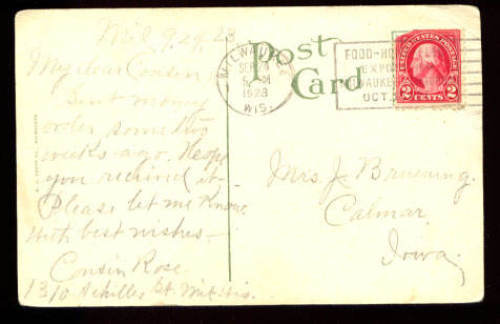 Mil 9.29.23
My dear Cousin
Sent money
order some two
weeks ago. Hope
you received it
Please let me know
With best wishes-
Cousin Rose
1310 Achilles St. Mil. Wis.
Post
Card
MILWAUKEE
SEP
1923
WIS.
FOOD-HO
EXPO
MILWAUKEE
OCT.
UNITED STATES POSTAGE
2 CENTS 2
Mrs J Bruening.
Calmar
Iowa.